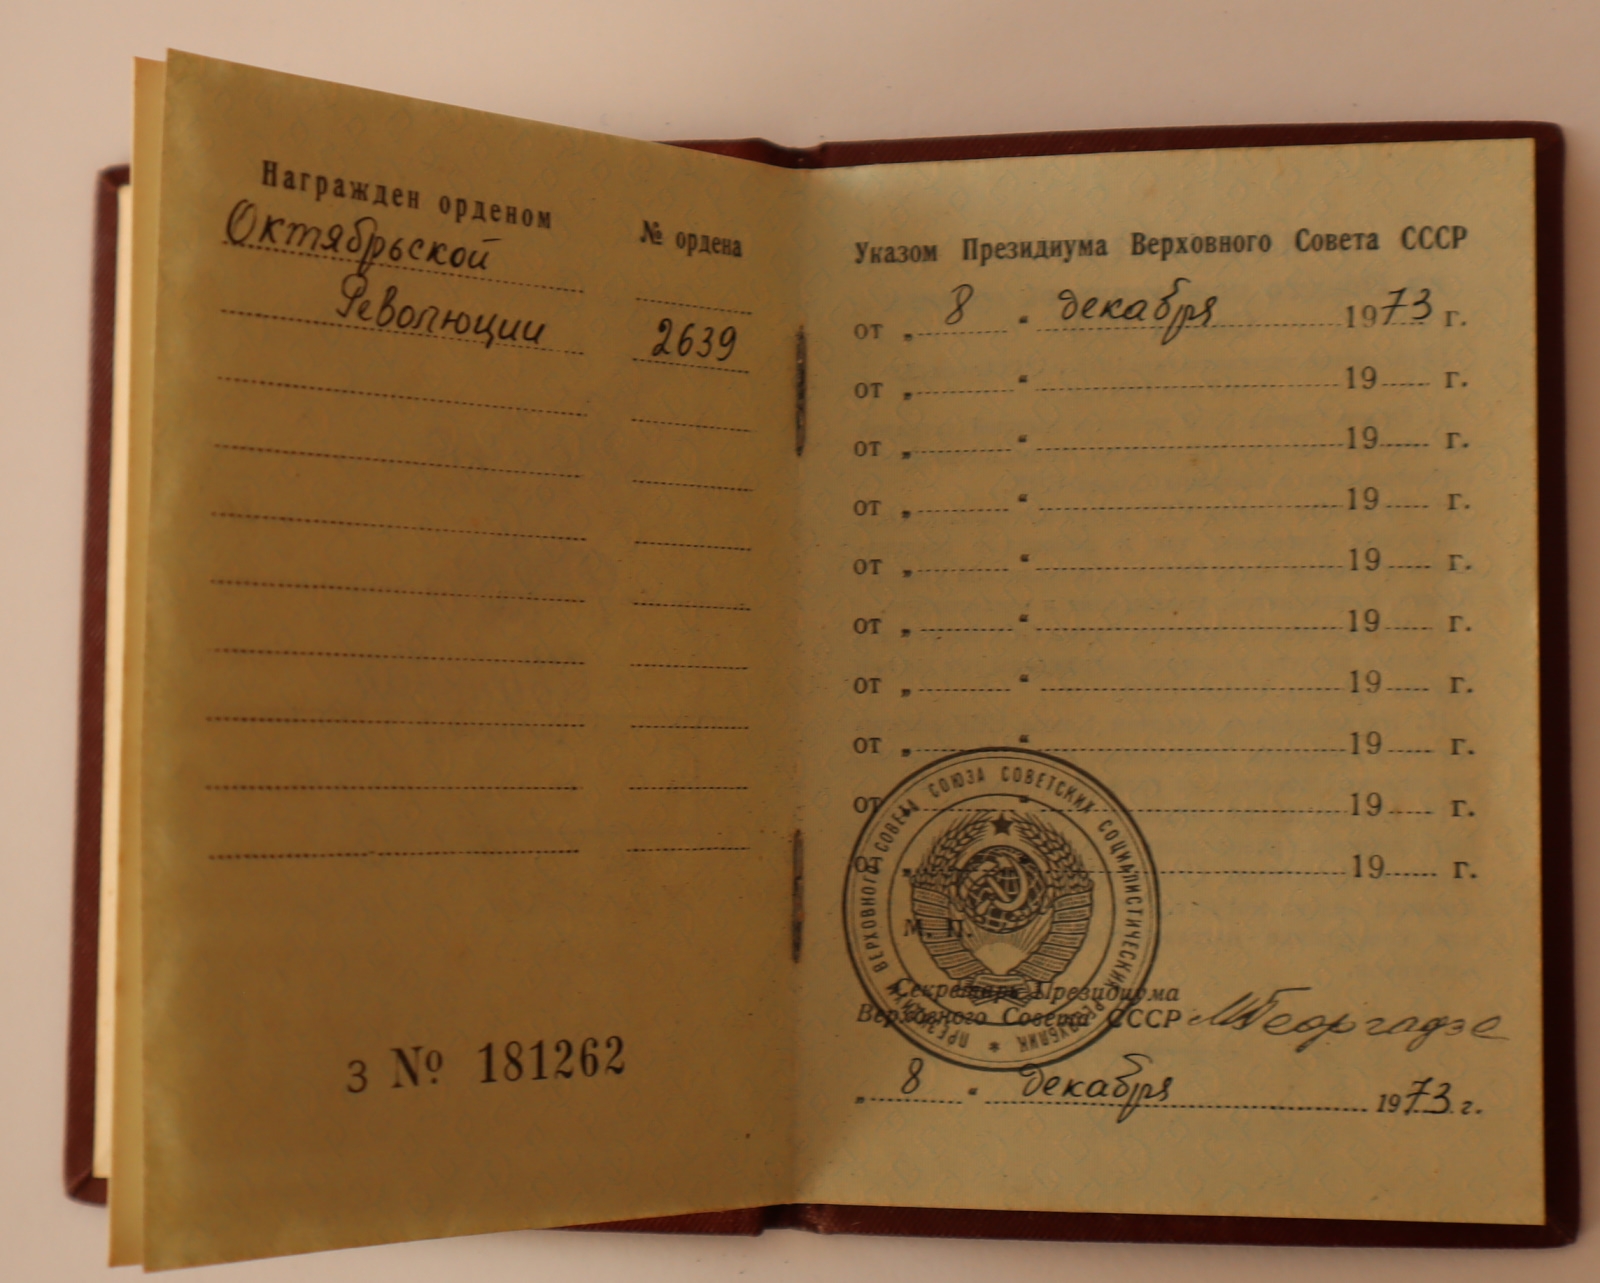 Награжден орденом № ордена
Октябрьской
Революции 2639
3 № 181262
Указом Президиума Верховного Совета СССР
от „ 8 “ декабря 1973 г.
от „ “ 19 г.
от „ “ 19 г.
от „ “ 19 г.
от „ “ 19 г.
от „ “ 19 г.
от „ “ 19 г.
от „ “ 19 г.
от „ “ 19 г.
от „ “ 19 г.
ПРЕЗИДИУМ ВЕРХОВНОГО СОВЕТА СОЮЗА СОВЕТСКИХ СОЦИАЛИСТИЧЕСКИХ РЕСПУБЛИК *
М. П.
Секретарь Президиума
Верховного Совета СССР МГеоргадзе
„ 8 “ декабря 1973 г.